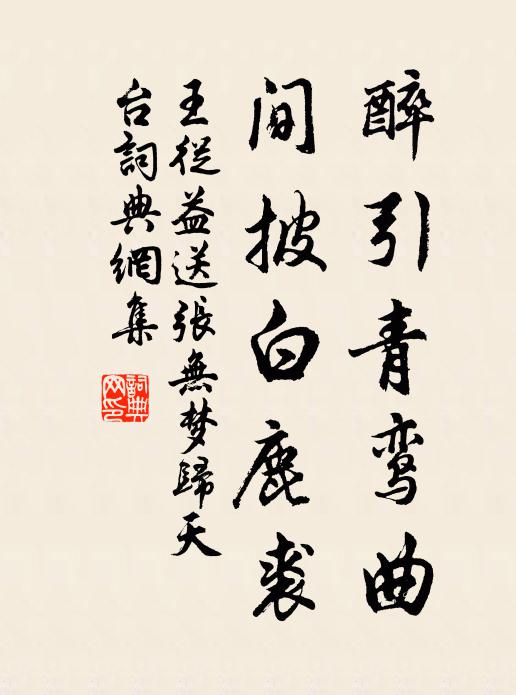 醉引青鸾曲
间披白鹿裘
王從益送張無梦歸天
台詞典網集
詞典
网印